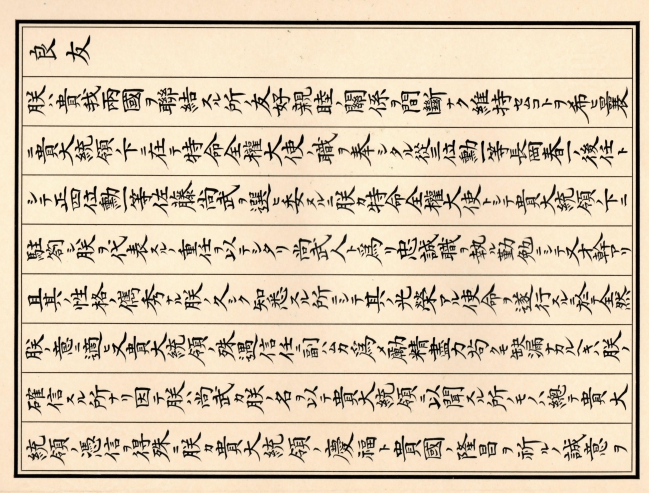 良友
朕ハ貴我兩國ヲ聯結スル所ノ友好親睦ノ關係ヲ間斷ナク維持セムコトヲ希ヒ曩
ニ貴大統領ノ下ニ在テ特命全權大使ノ職ヲ奉シタル從三位勳一等長岡春一ノ後任ト
シテ正四位勳一等佐藤尚武ヲ選ヒ委スルニ朕カ特命全權大使トシテ貴大統領ノ下ニ
駐箚シ朕ヲ代表スルノ重任ヲ以テシタリ尚武人ト爲リ忠誠職ヲ執ル勤勉ニシテ又才幹アリ
且其ノ性格儁秀ナル朕ノ久シク知悉スル所ニシテ其ノ光榮アル使命ヲ遂行スルニ於テ全然
朕ノ意ニ適ヒ又貴大統領ノ殊遇信任ニ副ハムカ爲メ勵精盡力苟クモ缺漏ナカルヘキハ朕ノ
確信スル所ナリ因テ朕ハ尚武カ朕ノ名ヲ以テ貴大統領ニ以聞スル所ノモノハ總テ貴大
統領ノ憑信ヲ得殊ニ朕カ貴大統領ノ慶福ト貴國ノ隆昌ヲ祈ルノ誠意ヲ